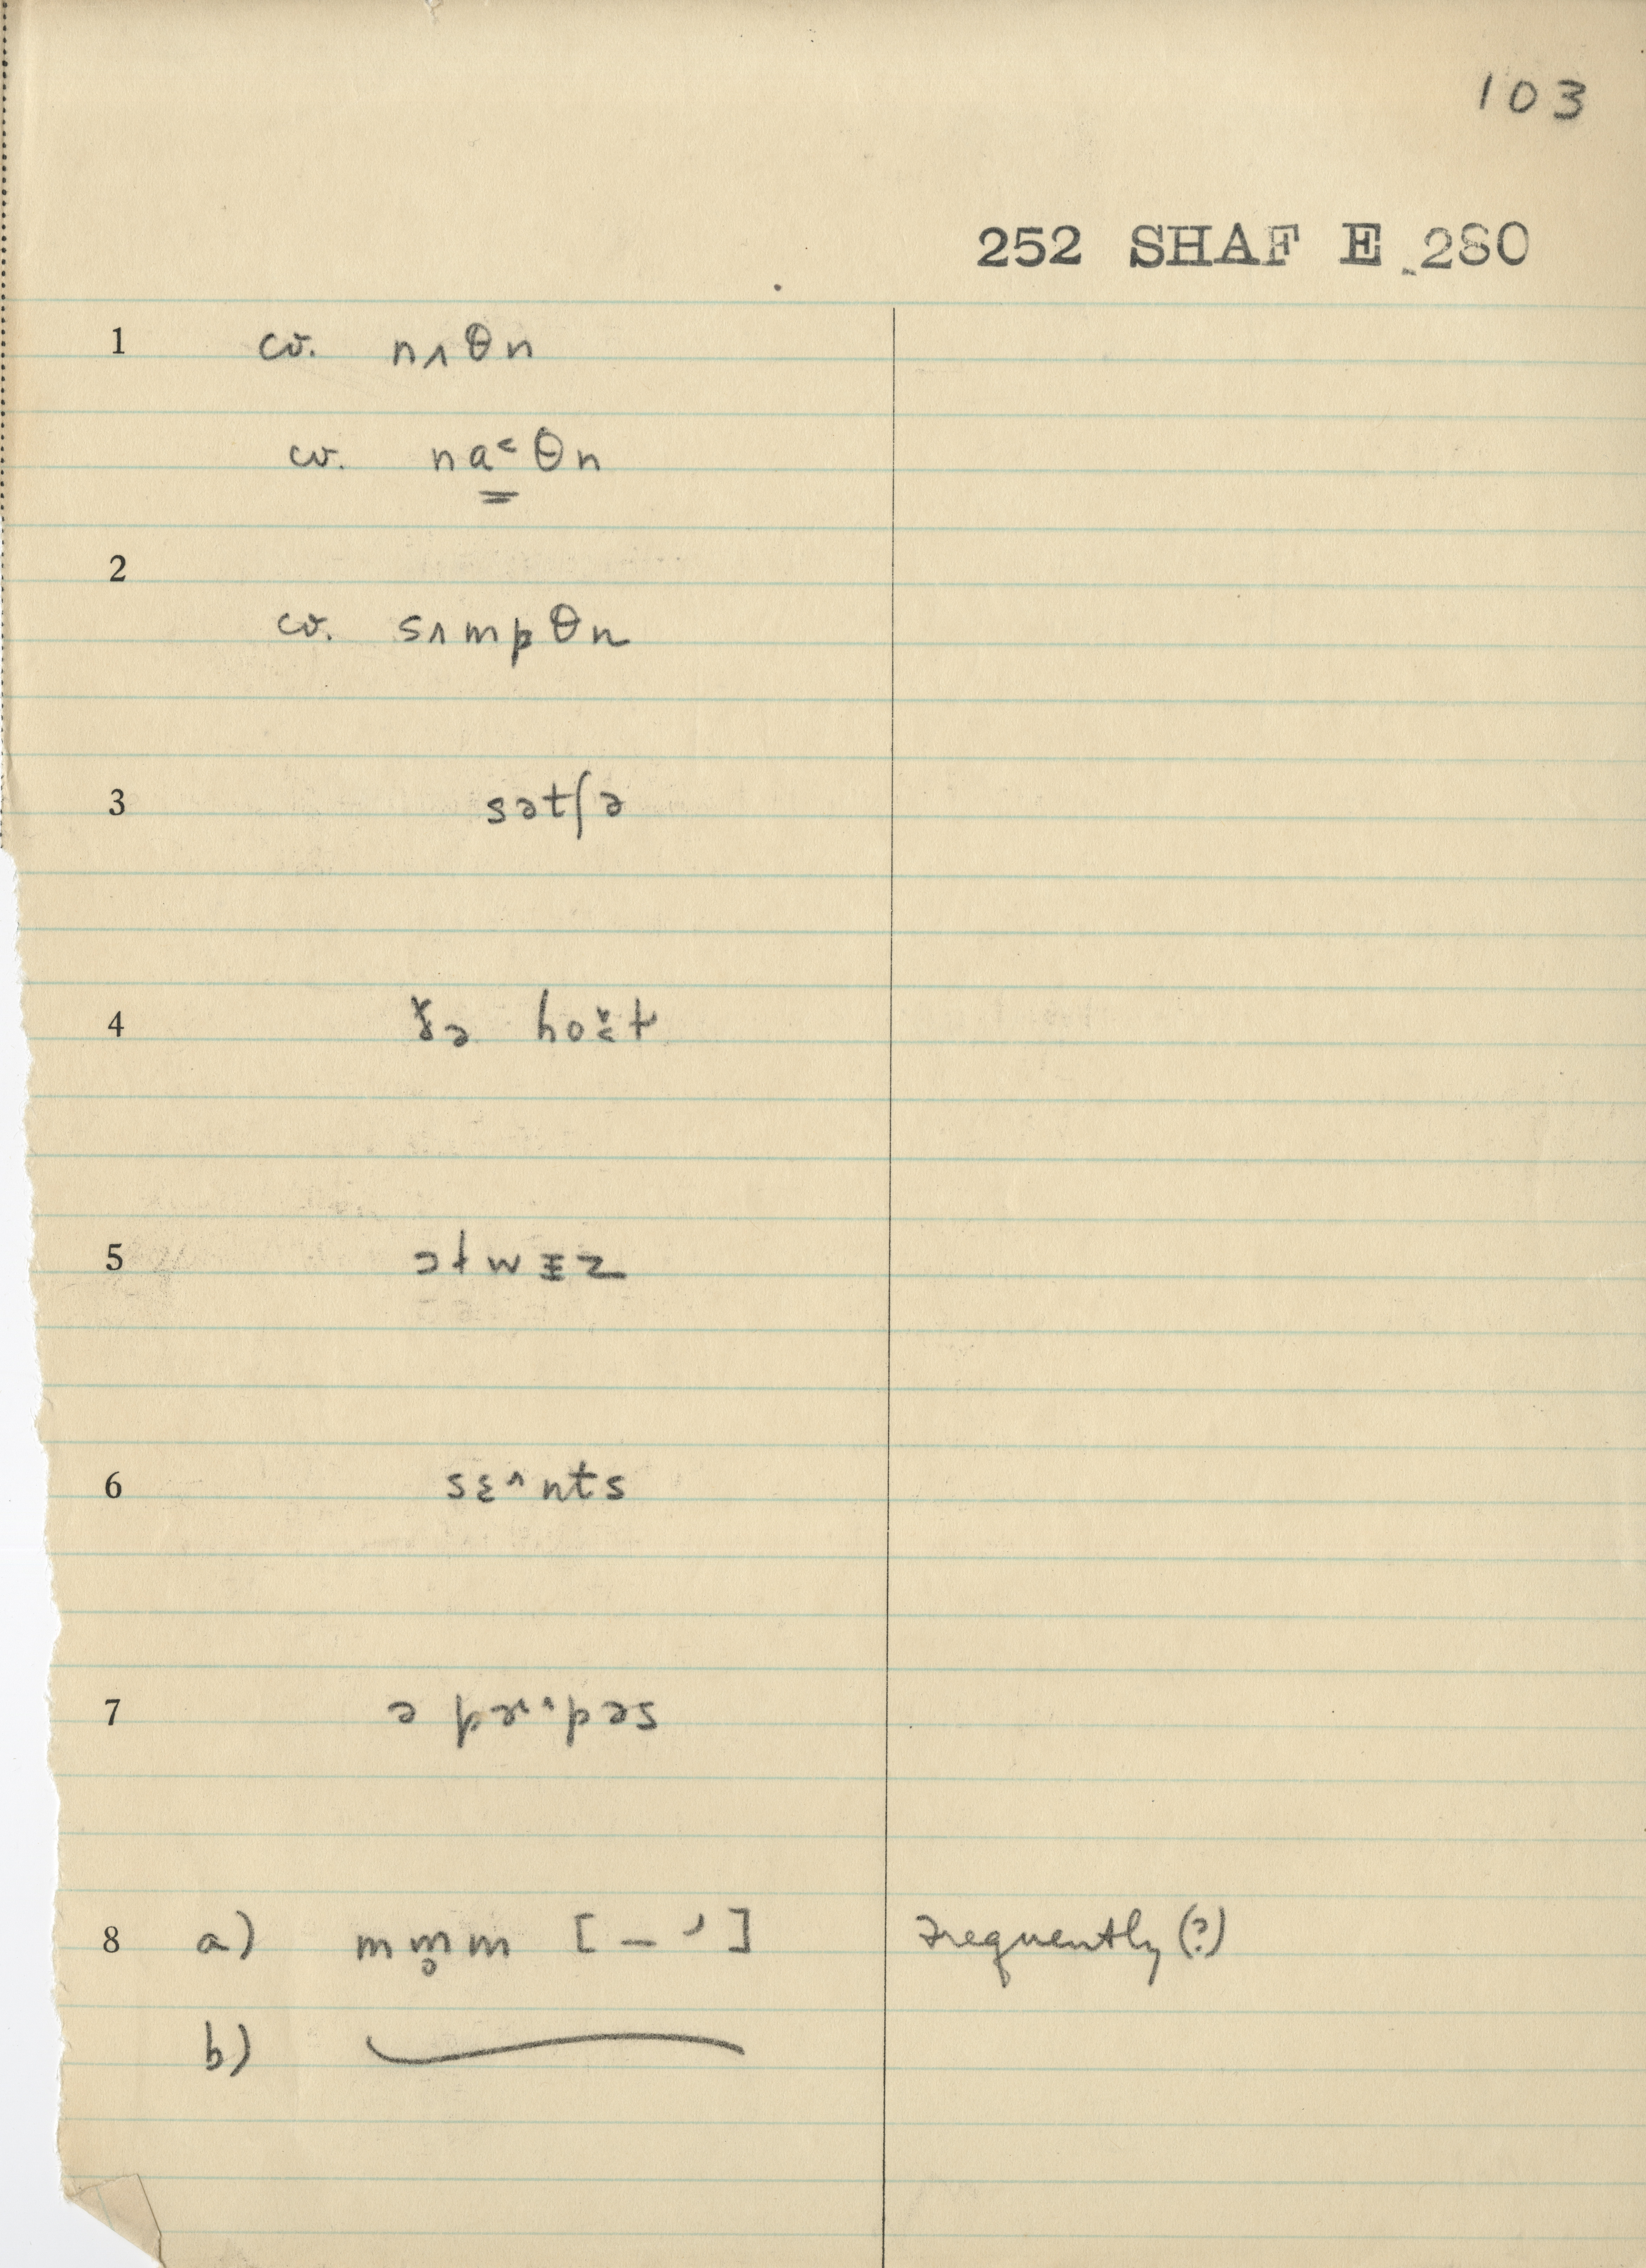 103
252 SHAF E 280
1 cv. nʌθn
cv. na̳˂θn
2
cv. sʌmpθn
3 sətʃə
4
5
6 sɛ^nts
7
8 a) mm̥m [ – ′ ] frequently (?)
b)